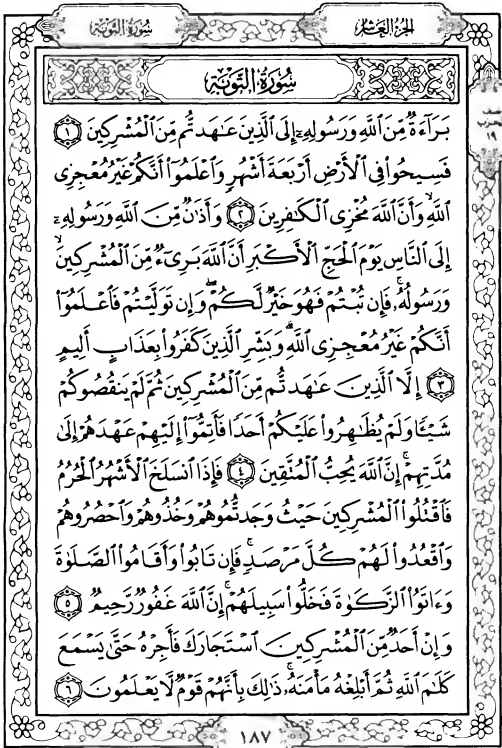 سُورَةُ التَّوْبَةِ
الجُزءُ العَاشِرُ
سُورَةُ التَّوْبَةِ
بَرَآءَةٌ مِّنَ ٱللَّهِ وَرَسُولِهِۦٓ إِلَى ٱلَّذِينَ عَـٰهَدتُّم مِّنَ ٱلْمُشْرِكِينَ ١
فَسِيحُوا۟ فِى ٱلْأَرْضِ أَرْبَعَةَ أَشْهُرٍ وَٱعْلَمُوٓا۟ أَنَّكُمْ غَيْرُ مُعْجِزِى
ٱللَّهِ ۙ وَأَنَّ ٱللَّهَ مُخْزِى ٱلْكَـٰفِرِينَ ٢ وَأَذَٰنٌ مِّنَ ٱللَّهِ وَرَسُولِهِۦٓ
إِلَى ٱلنَّاسِ يَوْمَ ٱلْحَجِّ ٱلْأَكْبَرِ أَنَّ ٱللَّهَ بَرِىٓءٌ مِّنَ ٱلْمُشْرِكِينَ ۙ
وَرَسُولُهُۥ ۚ فَإِن تُبْتُمْ فَهُوَ خَيْرٌ لَّكُمْ ۖ وَإِن تَوَلَّيْتُمْ فَٱعْلَمُوٓا۟
أَنَّكُمْ غَيْرُ مُعْجِزِى ٱللَّهِ ۗ وَبَشِّرِ ٱلَّذِينَ كَفَرُوا۟ بِعَذَابٍ أَلِيمٍ
٣ إِلَّا ٱلَّذِينَ عَـٰهَدتُّم مِّنَ ٱلْمُشْرِكِينَ ثُمَّ لَمْ يَنقُصُوكُمْ
شَيْـًٔا وَلَمْ يُظَـٰهِرُوا۟ عَلَيْكُمْ أَحَدًا فَأَتِمُّوٓا۟ إِلَيْهِمْ عَهْدَهُمْ إِلَىٰ
مُدَّتِهِمْ ۚ إِنَّ ٱللَّهَ يُحِبُّ ٱلْمُتَّقِينَ ٤ فَإِذَا ٱنسَلَخَ ٱلْأَشْهُرُ ٱلْحُرُمُ
فَٱقْتُلُوا۟ ٱلْمُشْرِكِينَ حَيْثُ وَجَدتُّمُوهُمْ وَخُذُوهُمْ وَٱحْصُرُوهُمْ
وَٱقْعُدُوا۟ لَهُمْ كُلَّ مَرْصَدٍ ۚ فَإِن تَابُوا۟ وَأَقَامُوا۟ ٱلصَّلَوٰةَ
وَءَاتَوُا۟ ٱلزَّكَوٰةَ فَخَلُّوا۟ سَبِيلَهُمْ ۚ إِنَّ ٱللَّهَ غَفُورٌ رَّحِيمٌ ٥
وَإِنْ أَحَدٌ مِّنَ ٱلْمُشْرِكِينَ ٱسْتَجَارَكَ فَأَجِرْهُ حَتَّىٰ يَسْمَعَ
كَلَـٰمَ ٱللَّهِ ثُمَّ أَبْلِغْهُ مَأْمَنَهُۥ ۚ ذَٰلِكَ بِأَنَّهُمْ قَوْمٌ لَّا يَعْلَمُونَ ٦
١٨٧